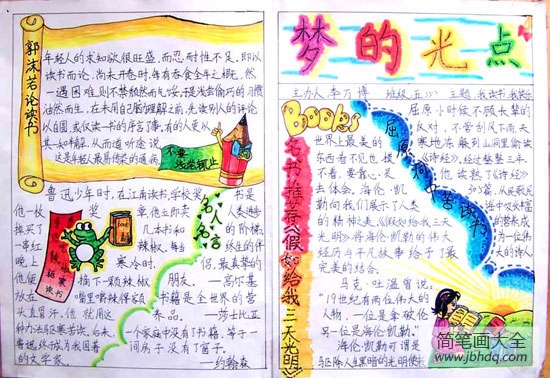 郭沫若论读书
年轻人的求知欲很旺盛，而忍耐性不足，即以
读书而论，尚未开卷时，每有吞食全牛之概，然
一遇困难，则不禁颓然而气馁，于是浅尝偷巧的习惯
油然而生，在未用自己的理解之前，先读别人的评论
以自园，或仅读一书的序言了事，有的人更从
其一知半解，从而道听途说，
这是年轻人最易传染的通病
不要
浅尝辄止
鲁迅少年时，在江南读书，学校奖
他一枚
奖
章，他立即卖
掉买了
几本书和
一串红
辣椒，每当
晚上
寒冷时，
他便
摘下一颗辣椒
放在
嘴里嚼，辣得额
头直冒汗，他就用这
种办法驱寒读书，由于
终成为我国著
的文学家。
辣椒
驱寒
读书
名人名言
书是
人类进步
的阶梯，
终生的伴
侣，最真挚的
朋友。
—高尔基
书籍是全世界的营
养品。—莎士比亚
一个家庭中没有了书籍，等于一
间房子没有了窗子。
—约翰森
梦的光点
主办人 李万博 班级：五(3) 主题：我读书 我快乐
Books
名书推荐《假如给我三天光明》
世界上最美的
东西看不见也摸
不着，要靠心灵
去体会，海伦·凯
勒向我们展示了人类
的精神之美《假如给我三天
光明》将海伦·凯勒的伟大
经历与平凡故事给予了最
完美的结合。
马克·吐温曾说，
“19世纪有两位伟大的
人物，一位是拿破伦
另一位是海伦·凯勒。”
海伦·凯勒可谓是
驱除人生黑暗的光明使
屈原洞中苦读书
屈原小时候不顾长辈的
反对，不管刮风下雨天
寒地冻，躲到山洞里偷读
《诗经》，经过整整三年，
他读熟了《诗经》
305篇，从民歌民
谣中吸取丰富
的营养成
为一位伟
大的诗人
简笔画大全
www.jbhdq.com